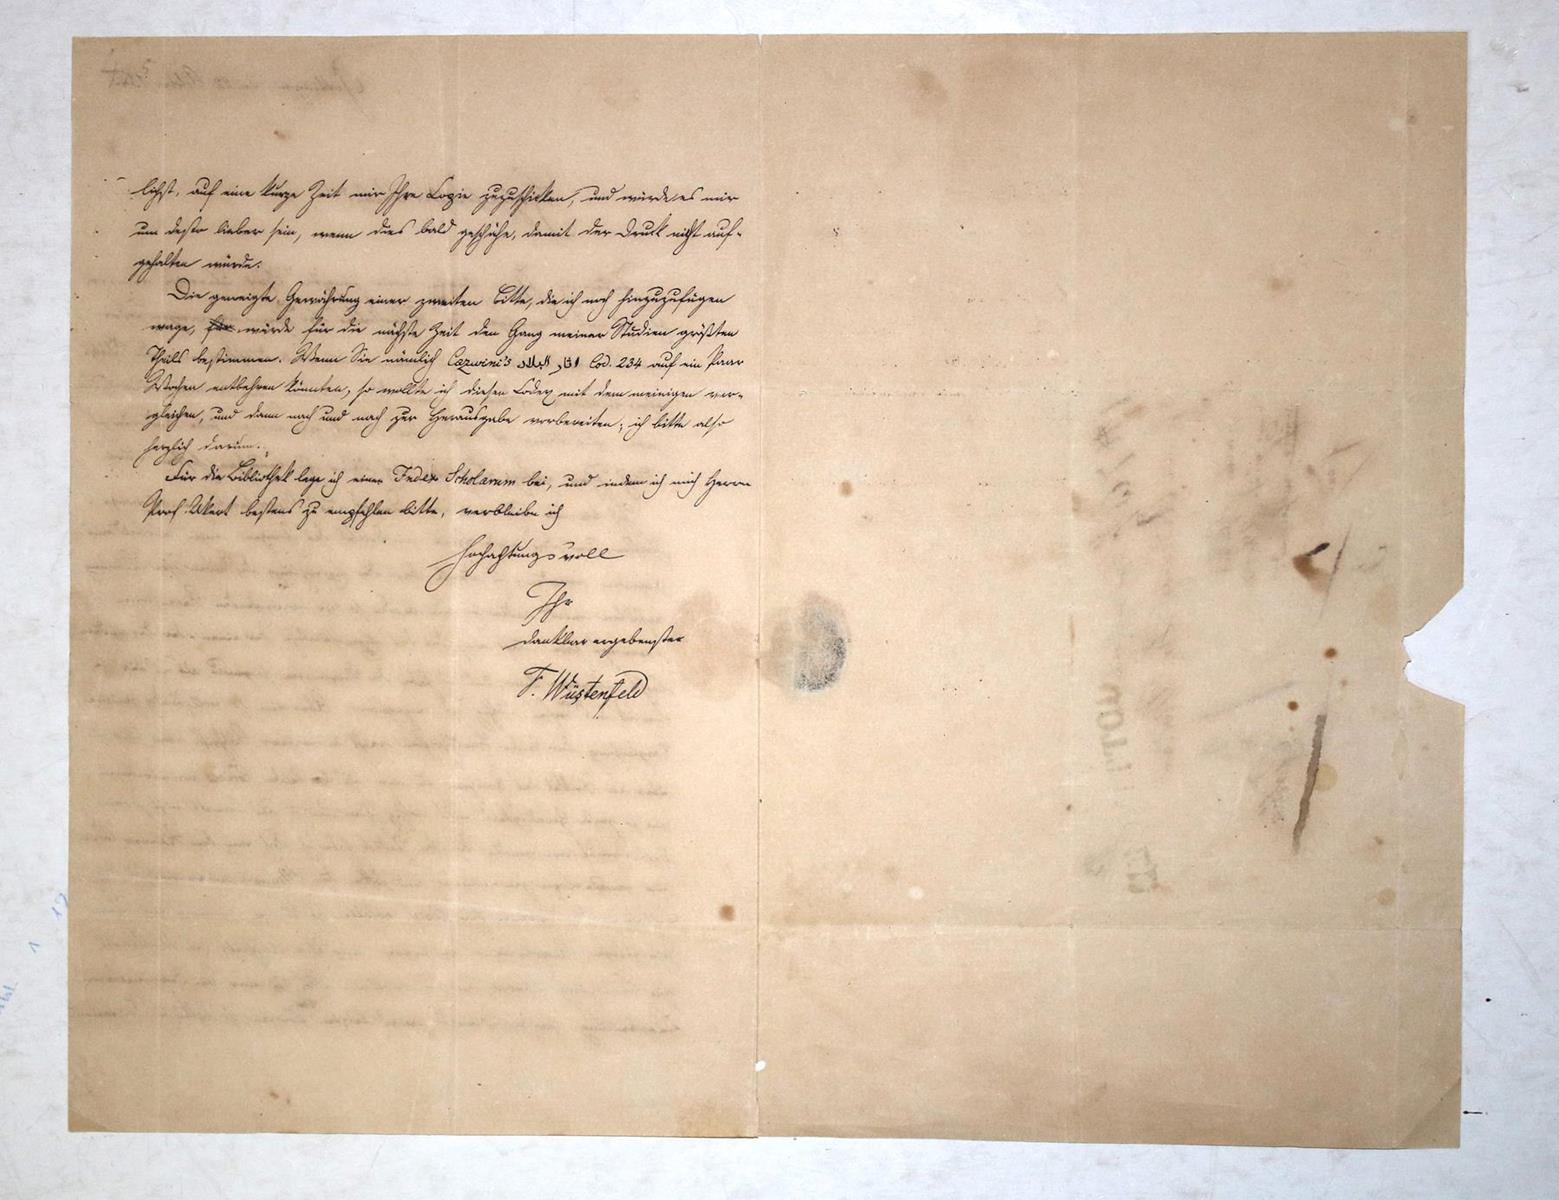 lichst, auf eine kurze Zeit mir Ihre Copie zuzuschicken, und würde es mir
um desto lieber sein, wenn dies bald geschähe, damit der Druck nicht auf-
gehalten würde.
Die geneigte Gewährung einer zweiten Bitte, die ich noch hinzuzufügen
wage, würde für die nächste Zeit den Gang meiner Studien größten
Theils bestimmen. Wenn Sie nämlich Cazwini's اثار البلاد Cod. 234 auf ein Paar
Wochen entbehren könnten, so wollte ich diesen Codex mit dem meinigen ver-
gleichen, und dann nach und nach zur Herausgabe vorbereiten; ich bitte also
herzlich darum.
Für die Bibliothek lege ich einen Index Scholarum bei, und indem ich mich Herrn
Prof. Ukert bestens zu empfehlen bitte, verbleibe ich
Hochachtungsvoll
Ihr
dankbar ergebenster
F. Wüstenfeld